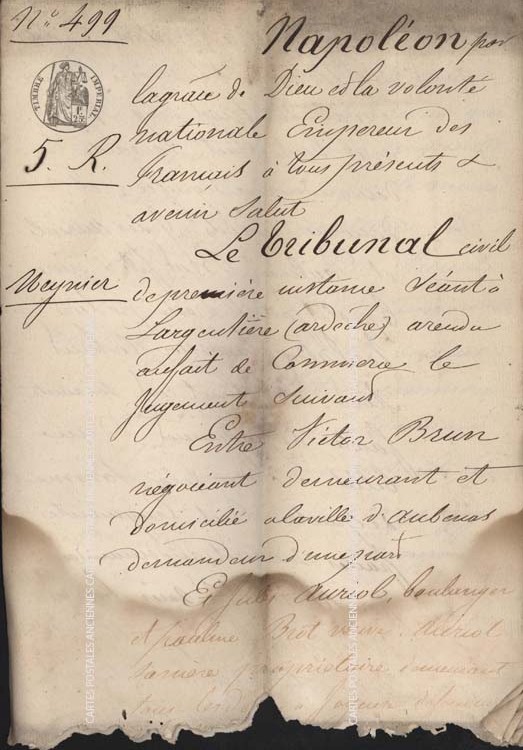 N° 499
Napoléon par
TIMBRE IMPERIAL
la grace de Dieu et la volonté
nationale Empereur des
5. R.
Français à tous présents &
avenir Salut
Le Tribunal civil
Meynier
de première instance séant à
Largentière (ardèche) a rendu
au fait de Commerce le
Jugement Suivant
Entre Victor Brun
négociant demeurant et
domicilié à la ville d'aubenas
demandeur d'une part
Et Jules Auriol, boulanger
et pauline Brot veuve Auriol
sa mère propriétaire demeurant
tous les deux à
CARTES POSTALES ANCIENNES